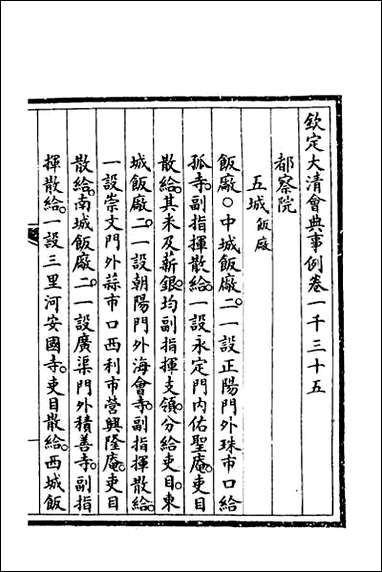 欽定大清會典事例卷一千三十五
都察院
五城飯廠
飯廠○中城飯廠二一設正陽門外珠市口給
孤寺副指揮散給一設永定門內佑聖庵吏目
散給其米及薪銀均副指揮支領分給吏目東
城飯廠二一設朝陽門外海會寺副指揮散給
一設崇文門外蒜市口西利市營興隆庵吏目
散給南城飯廠二一設廣渠門外積善寺副指
揮散給一設三里河安國寺吏目散給西城飯